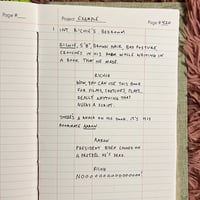 Page #
Project EXAMPLE
Page # 420
1 INT RICHIE'S BEDROOM
RICHIE, 5'8", BROWN HAIR, BAD POSTURE
CROUCHES IN HIS ROOM WHILE WRITING IN
A BOOK THAT HE MADE.
RICHIE
WOW, YOU CAN USE THIS BOOK
FOR FILMS, SKETCHES, PLAYS,
REALLY ANYTHING THAT
USES A SCRIPT.
THERE'S A KNOCK ON HIS DOOR. IT'S HIS
ROOMMATE AARON
AARON
PRESIDENT BIDEN CHOKED ON
A PRETZEL. HE'S DEAD.
RICHIE
NOOOOOOOOOOOOOOO!